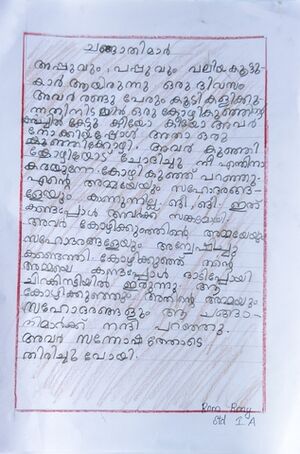 ചങ്ങാതിമാർ
അപ്പുവും, പപ്പുവും വലിയ കൂട്ടു
കാർ ആയിരുന്നു. ഒരു ദിവസം
അവർ രണ്ടു പേരും കൂടി കളിക്കു
ന്നതിനിടയിൽ ഒരു കോഴികുഞ്ഞിന്റെ
കരച്ചിൽ കേട്ടു. കീയോ കീയോ അവർ
നോക്കിയപ്പോൾ അതാ ഒരു
കുഞ്ഞിക്കോഴി. അവർ കുഞ്ഞി
കോഴിയോട് ചോദിച്ചു നീ എന്തിനാ
കരയുന്നേ. കോഴികുഞ്ഞ് പറഞ്ഞു.
എന്റെ അമ്മയേയും സഹോദരങ്ങ-
ളേയും കാണുന്നില്ല. ങ്ങീ, ങ്ങീ. ഇത്
കണ്ടപ്പോൾ അവർക്ക് സങ്കടമായി
അവർ കോഴിക്കുഞ്ഞിന്റെ അമ്മയേയും
സഹോദരങ്ങളേയും അന്വേഷിച്ചു
കണ്ടെത്തി. കോഴിക്കുഞ്ഞ് തന്റെ
അമ്മയെ കണ്ടപ്പോൾ ഓടിപ്പോയി
ചിറകിനടിയിൽ ഇരുന്നു. ആ
കോഴിക്കുഞ്ഞും അതിന്റെ അമ്മയും
സഹോദരങ്ങളും ആ ചങ്ങാ-
തിമാർക്ക് നന്ദി പറഞ്ഞു.
അവർ സന്തോഷത്തോടെ
തിരിച്ചു പോയി.
Ron Rony
std I A